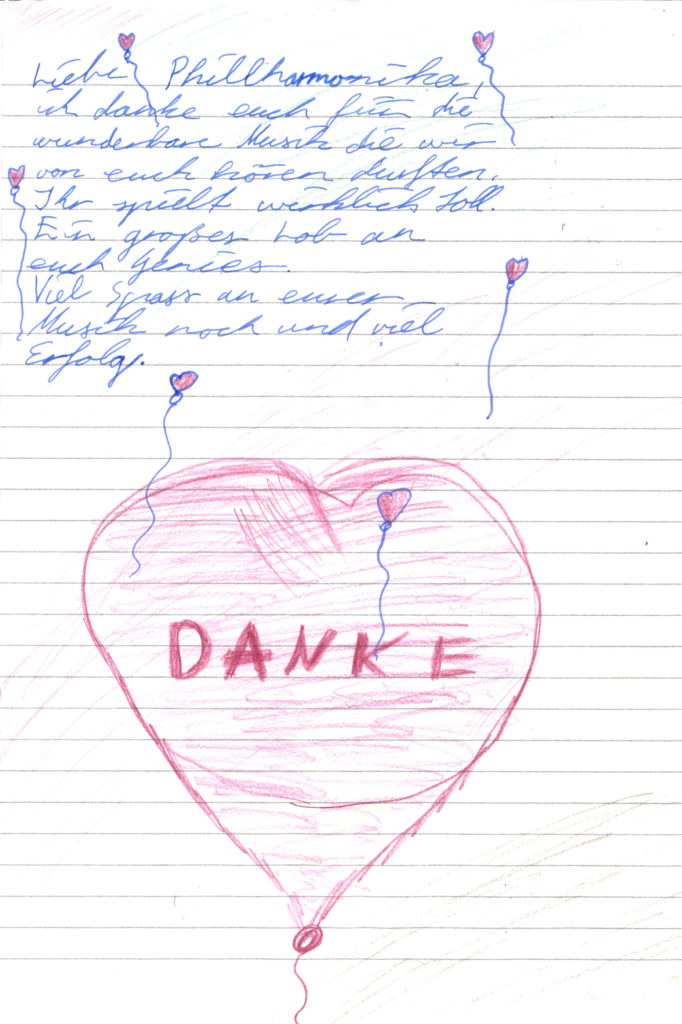 Liebe Phillharmonika,
ich danke euch für die
wunderbare Musik die wir
von euch hören durften.
Ihr spielt wirklich toll.
Ein großes Lob an
euch Genies.
Viel Spass an eurer
Musik noch und viel
Erfolg.
DANKE